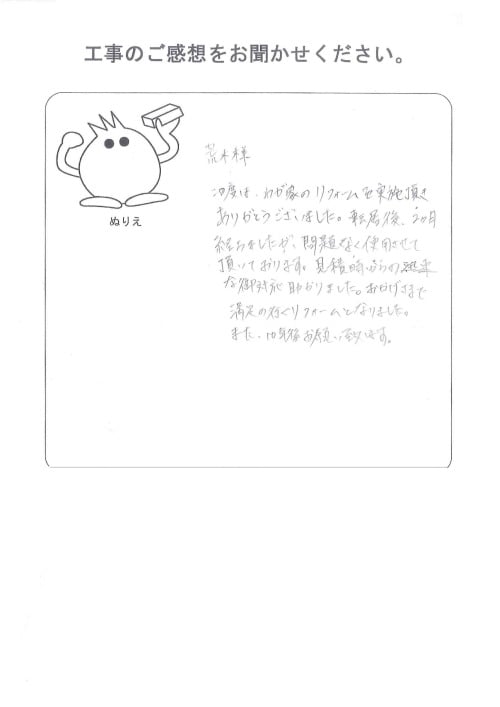 工事のご感想をお聞かせください。
ぬりえ
荒木様
この度は、わが家のリフォームを実施頂き
ありがとうございました。転居後、2ヵ月
経ちましたが、問題なく使用させて
頂いております。見積時からの
な御対応 助かりました。おかげさまで
満足の行くリフォームとなりました。
また、10年後お願い致します。